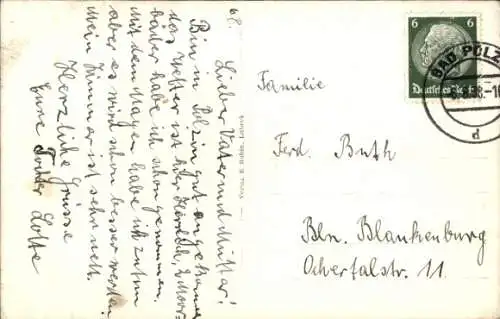 68.
Lieber Vater und Mutter!
Bin in Polzin gut angekommen
das Wetter ist hier herrlich, 2 Moor-
bäder habe ich schon genommen,
Mit dem Magen habe ich zu tun
aber es wird schon besser werden.
Mein Zimmer ist sehr nett.
Herzliche Grüsse
Eure Tochter Lotte
Verlag R.
6 6
Deutsches Reich
BAD POLZ
d
Familie
Ferd. Buth
Bln. Blankenburg
Ochertalstr. 11.